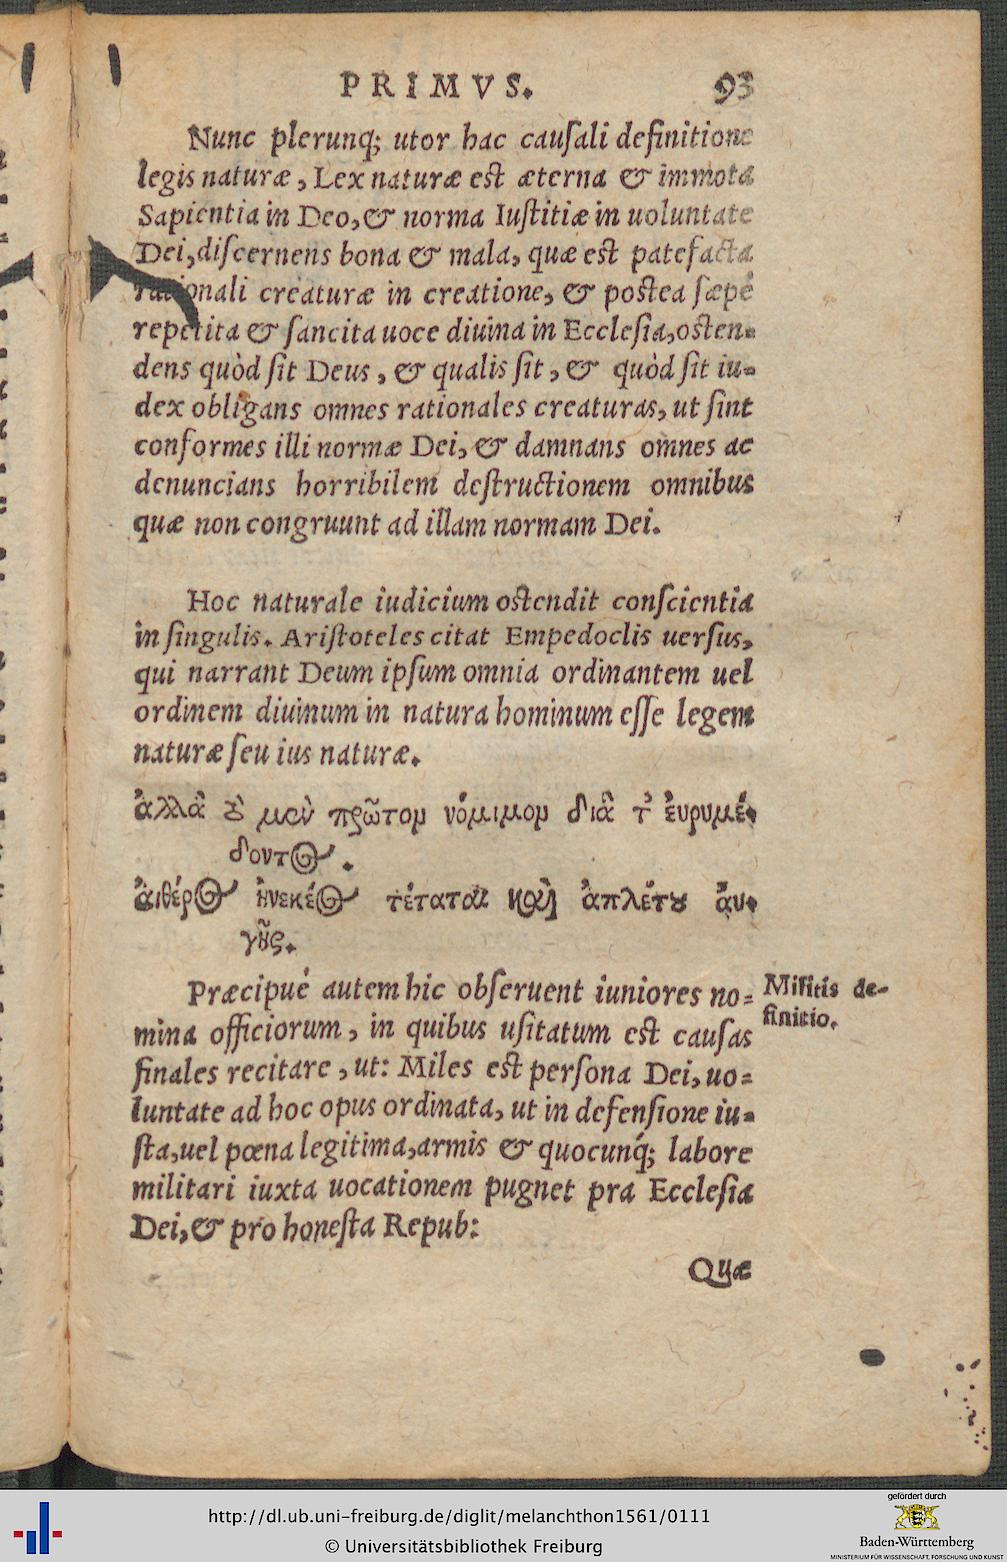 PRIMVS. 93
Nunc plerunq; utor hac cauſali definitione
legis naturæ, Lex naturæ est æterna & immota
Sapientia in Deo, & norma Iuſtitiæ in uoluntate
Dei, diſcernens bona & mala, quæ est patefacta
rationali creaturæ in creatione, & postea ſæpe
repetita & ſancita uoce diuina in Eccleſia, osten-
dens quòd ſit Deus, & qualis ſit, & quòd ſit iu-
dex obligans omnes rationales creaturas, ut ſint
conformes illi normæ Dei, & damnans omnes ac
denuncians horribilem deſtructionem omnibus
quæ non congruunt ad illam normam Dei.
Hoc naturale iudicium ostendit conſcientia
in ſingulis. Ariſtoteles citat Empedoclis uerſus,
qui narrant Deum ipſum omnia ordinantem uel
ordinem diuinum in natura hominum eſſe legem
naturæ ſeu ius naturæ.
ἀλλὰ ȣ̓ μὲν πρῶτον νόμιμον διὰ τ̓ ἐυρυμέ-
δοντος.
ἀιθέρος ἠνεκέος τέταται καὶ ἀπλέτȣ ἀυ-
γȣ͂ς.
Præcipuè autem hic obſeruent iuniores no-
mina officiorum, in quibus uſitatum est cauſas
finales recitare, ut: Miles est perſona Dei, uo-
luntate ad hoc opus ordinata, ut in defenſione iu-
ſta, uel pœna legitima, armis & quocunq́; labore
militari iuxta uocationem pugnet pra Eccleſia
Dei, & pro honeſta Repub:
Militis de-
finitio.
Quæ
http://dl.ub.uni-freiburg.de/diglit/melanchthon1561/0111
© Universitätsbibliothek Freiburg
gefördert durch
Baden-Württemberg
MINISTERIUM FÜR WISSENSCHAFT, FORSCHUNG UND KUNST